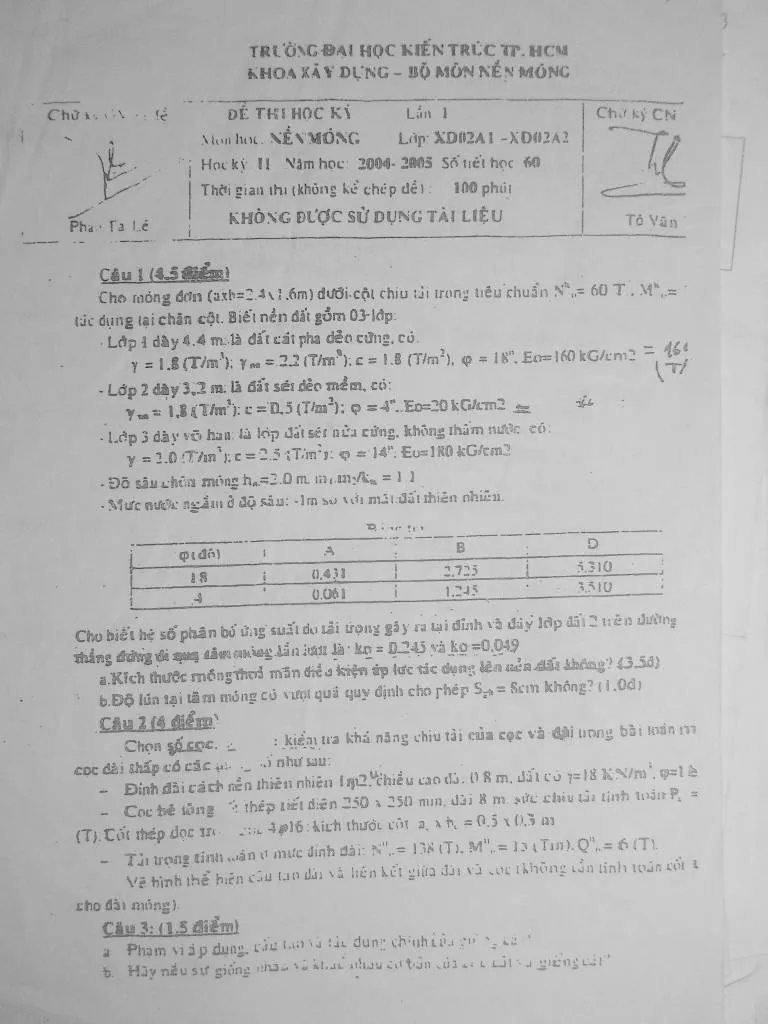 TRƯỜNG ĐẠI HỌC KIẾN TRÚC TP. HCM
KHOA XÂY DỰNG – BỘ MÔN NỀN MÓNG
ĐỀ THI HỌC KỲ Lần 1
Môn học: NỀN MÓNG Lớp: XD02A1 -XD02A2
Học kỳ II Năm học: 2004- 2005 Số tiết học 60
Thời gian thi (không kể chép đề) : 100 phút
KHÔNG ĐƯỢC SỬ DỤNG TÀI LIỆU
Chữ ký CN
Tô Văn
Câu 1 (4.5 điểm)
Cho móng đơn (axb=2.4x1.6m) dưới cột chịu tải trọng tiêu chuẩn N = 60 T , M =
tác dụng tại chân cột. Biết nền đất gồm 03 lớp:
- Lớp 1 dày 4.4 m là đất cát pha dẻo cứng, có:
γ = 1.8 (T/m³); = 2.2 (T/m³); c = 1.8 (T/m²), φ = 18°, Eo=160 kG/cm2
- Lớp 2 dày 3.2 m là đất sét dẻo mềm, có:
= 1,8 (T/m³); c = 0,5 (T/m²); φ = 4°, Eo=20 kG/cm2
- Lớp 3 dày vô hạn: là lớp đất sét nửa cứng, không thấm nước, có:
γ = 2.0 (T/m³); c = 2.5 (T/m²); φ = 14°; Eo=180 kG/cm2
- Độ sâu chôn móng =2.0 m, = 1.1
- Mực nước ngầm ở độ sâu: -1m so với mặt đất thiên nhiên.
φ(độ) A B D
18 0.431 2.725 5.310
4 0.061 1.245 3.510
Cho biết hệ số phân bố ứng suất do tải trọng gây ra tại đỉnh và đáy lớp đất 2 trên đường
thẳng đứng đi qua tâm móng lần lượt là: ko = 0.245 và ko =0.049
a.Kích thước móng thoả mãn điều kiện áp lực tác dụng lên nền đất không? (3.5đ)
b.Độ lún tại tâm móng có vượt quá quy định cho phép = 8cm không? (1.0đ)
Câu 2 (4 điểm)
Chọn số cọc, : kiểm tra khả năng chịu tải của cọc và đài trong bài toán
cọc đài thấp có các như sau:
– Đỉnh đài cách nền thiên nhiên 1m2, chiều cao đài 0.8 m, đất có γ=18 KN/m³,
– Cọc bê tông thép tiết diện 250 x 250 mm, dài 8 m, sức chịu tải tính toán =
(T). Cốt thép dọc 4φ16; kích thước cột = 0.5 x 0.3 m
– Tải trọng tính toán ở mức đỉnh đài: N = 138 (T), M = 15 (Tm), Q = 6 (T).
Vẽ hình thể hiện cấu tạo đài và liên kết giữa đài và cọc (không cần tính toán cốt
cho đài móng).
Câu 3: (1.5 điểm)
a Phạm vi áp dụng, cấu tạo và tác dụng chính của
b. Hãy nêu sự giống nhau và khác nhau cơ bản của